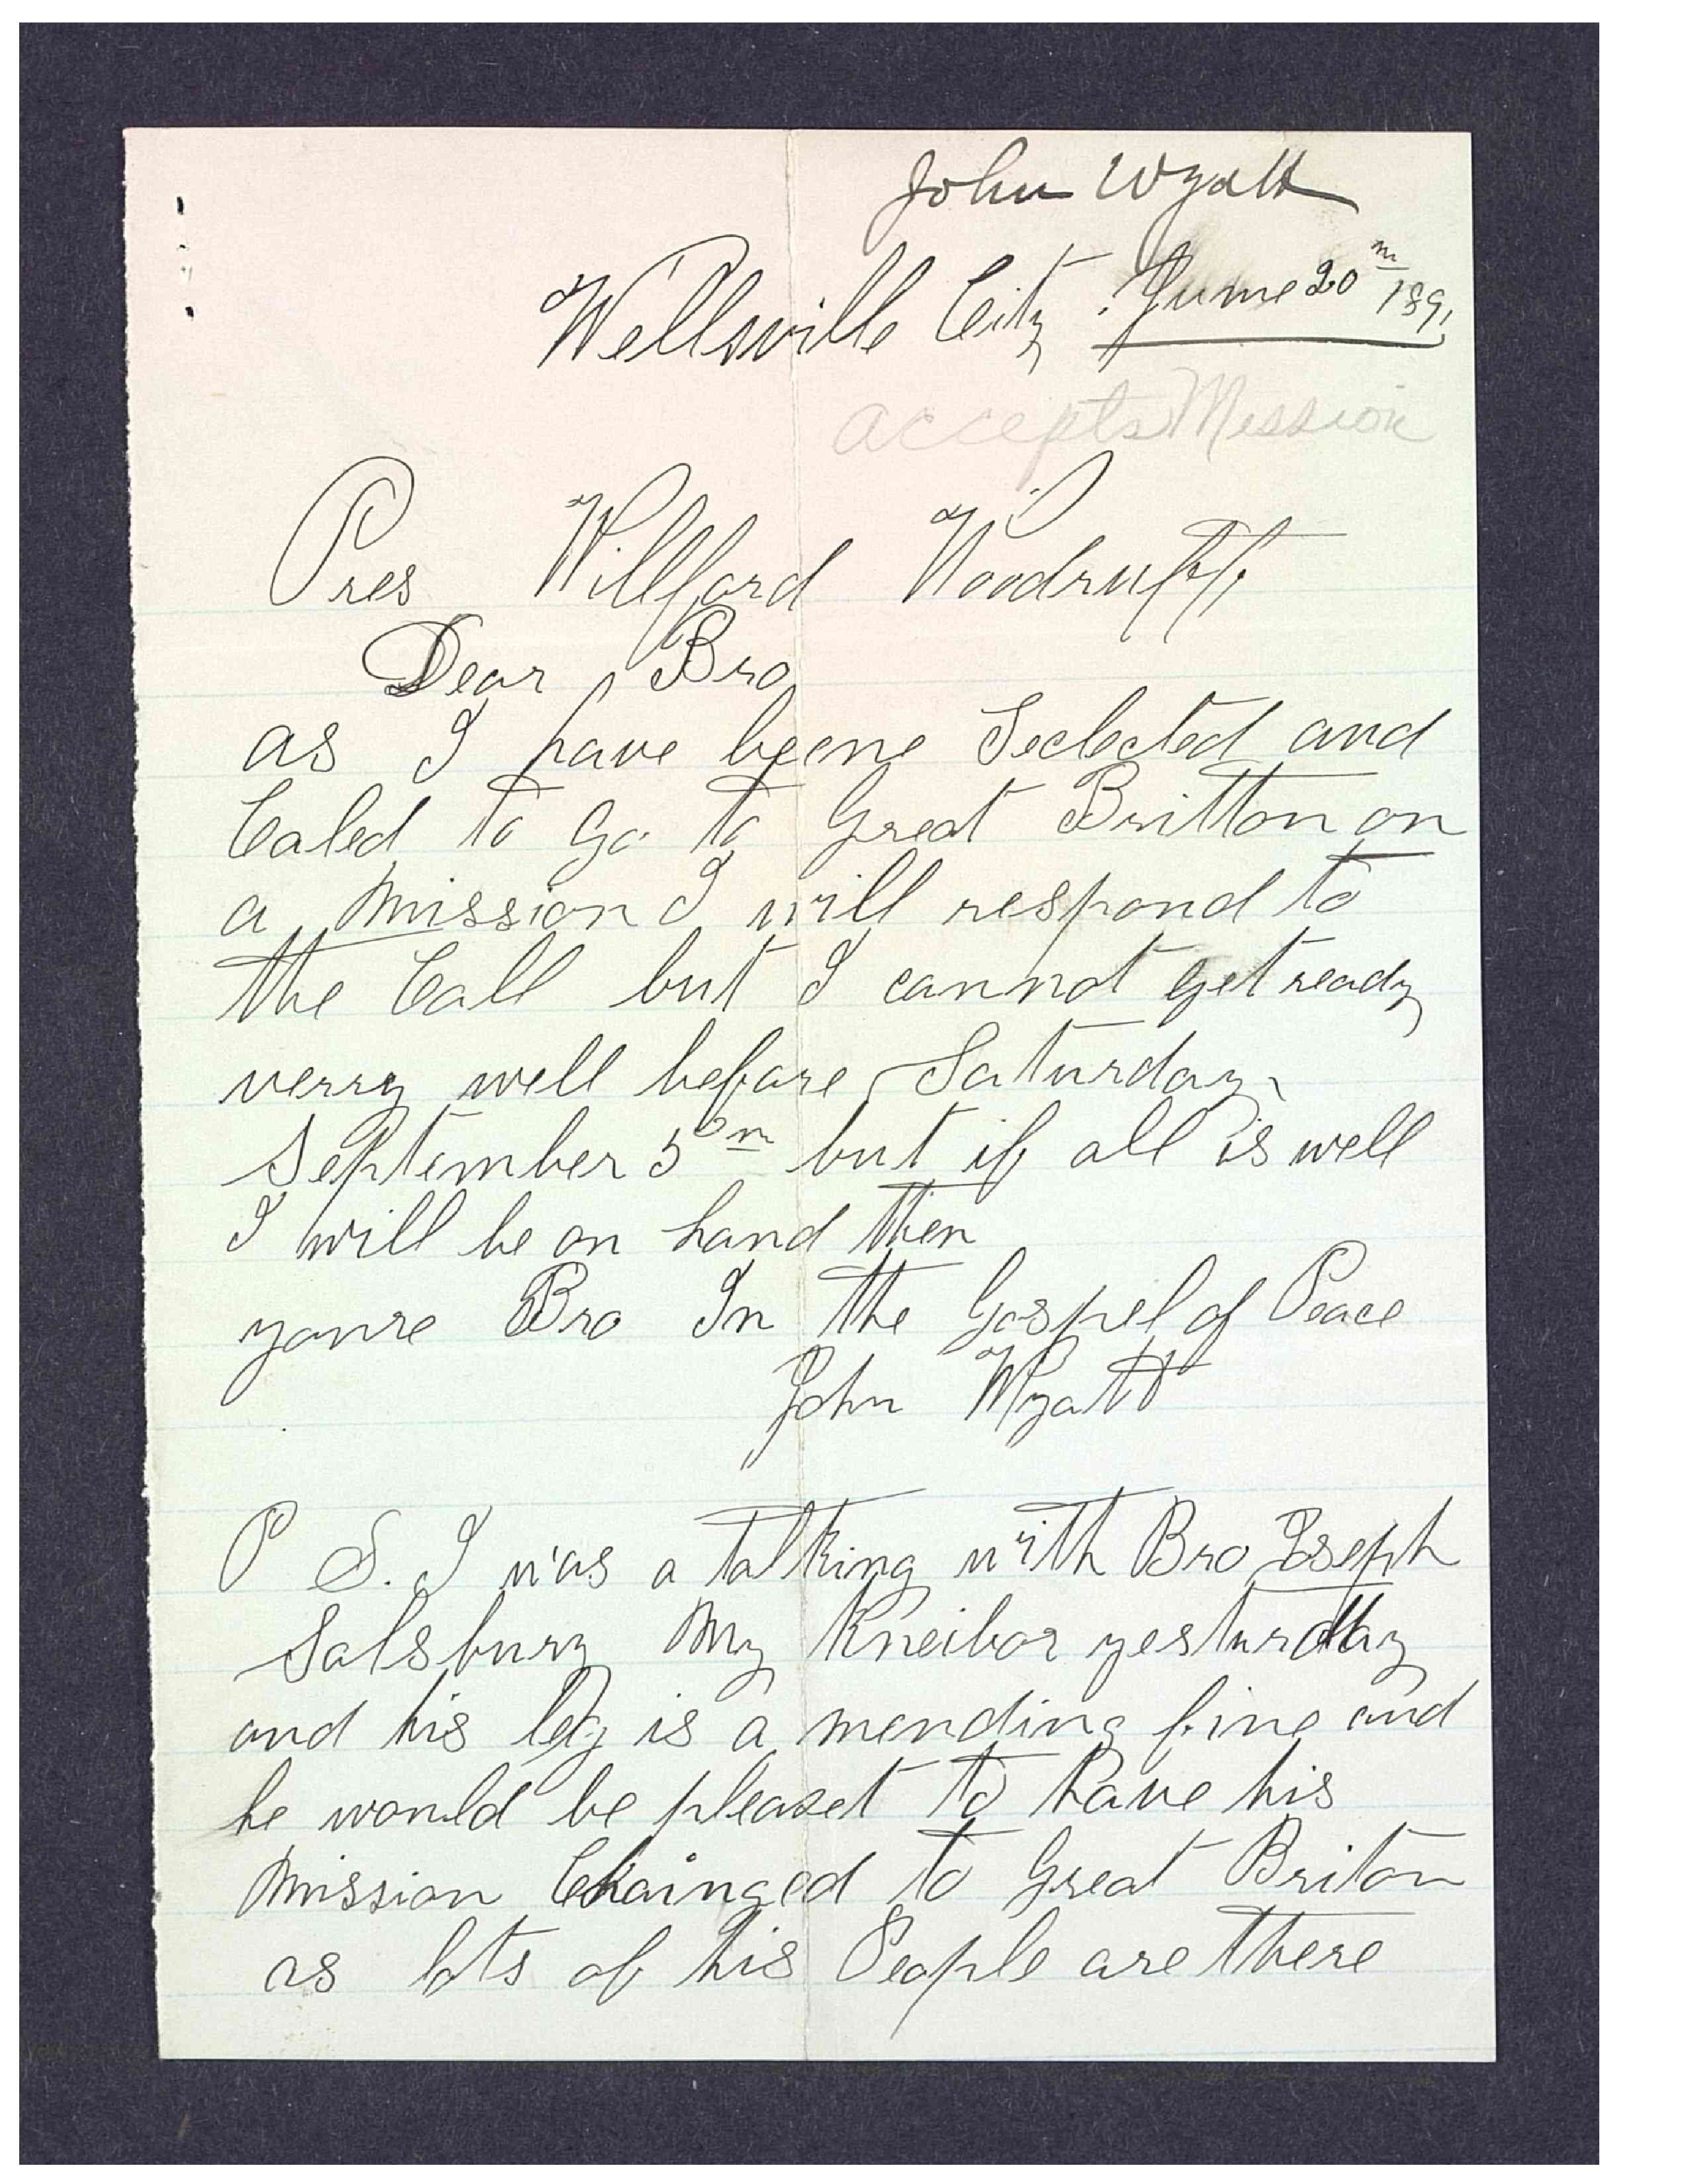 John Wyatt
Wellsville City. June 20th 1891
accepts Mission
Pres Willford Woodruff
Dear Bro
as I have beene Seclected and
Caled to Go to Great Britton on
a mission I will respond to
the Call but I cannot get ready
verry well before Saturday
September 5th but if all is well
I will be on hand then
youre Bro In the Gospel of Peace
John Wyatt
P S. I was a talking with Bro Joseph
Salsbury my kneibor yesturday
and his leg is a mending fine and
he would be pleaset to have his
mission Chainged to Great Briton
as lots of his People are there